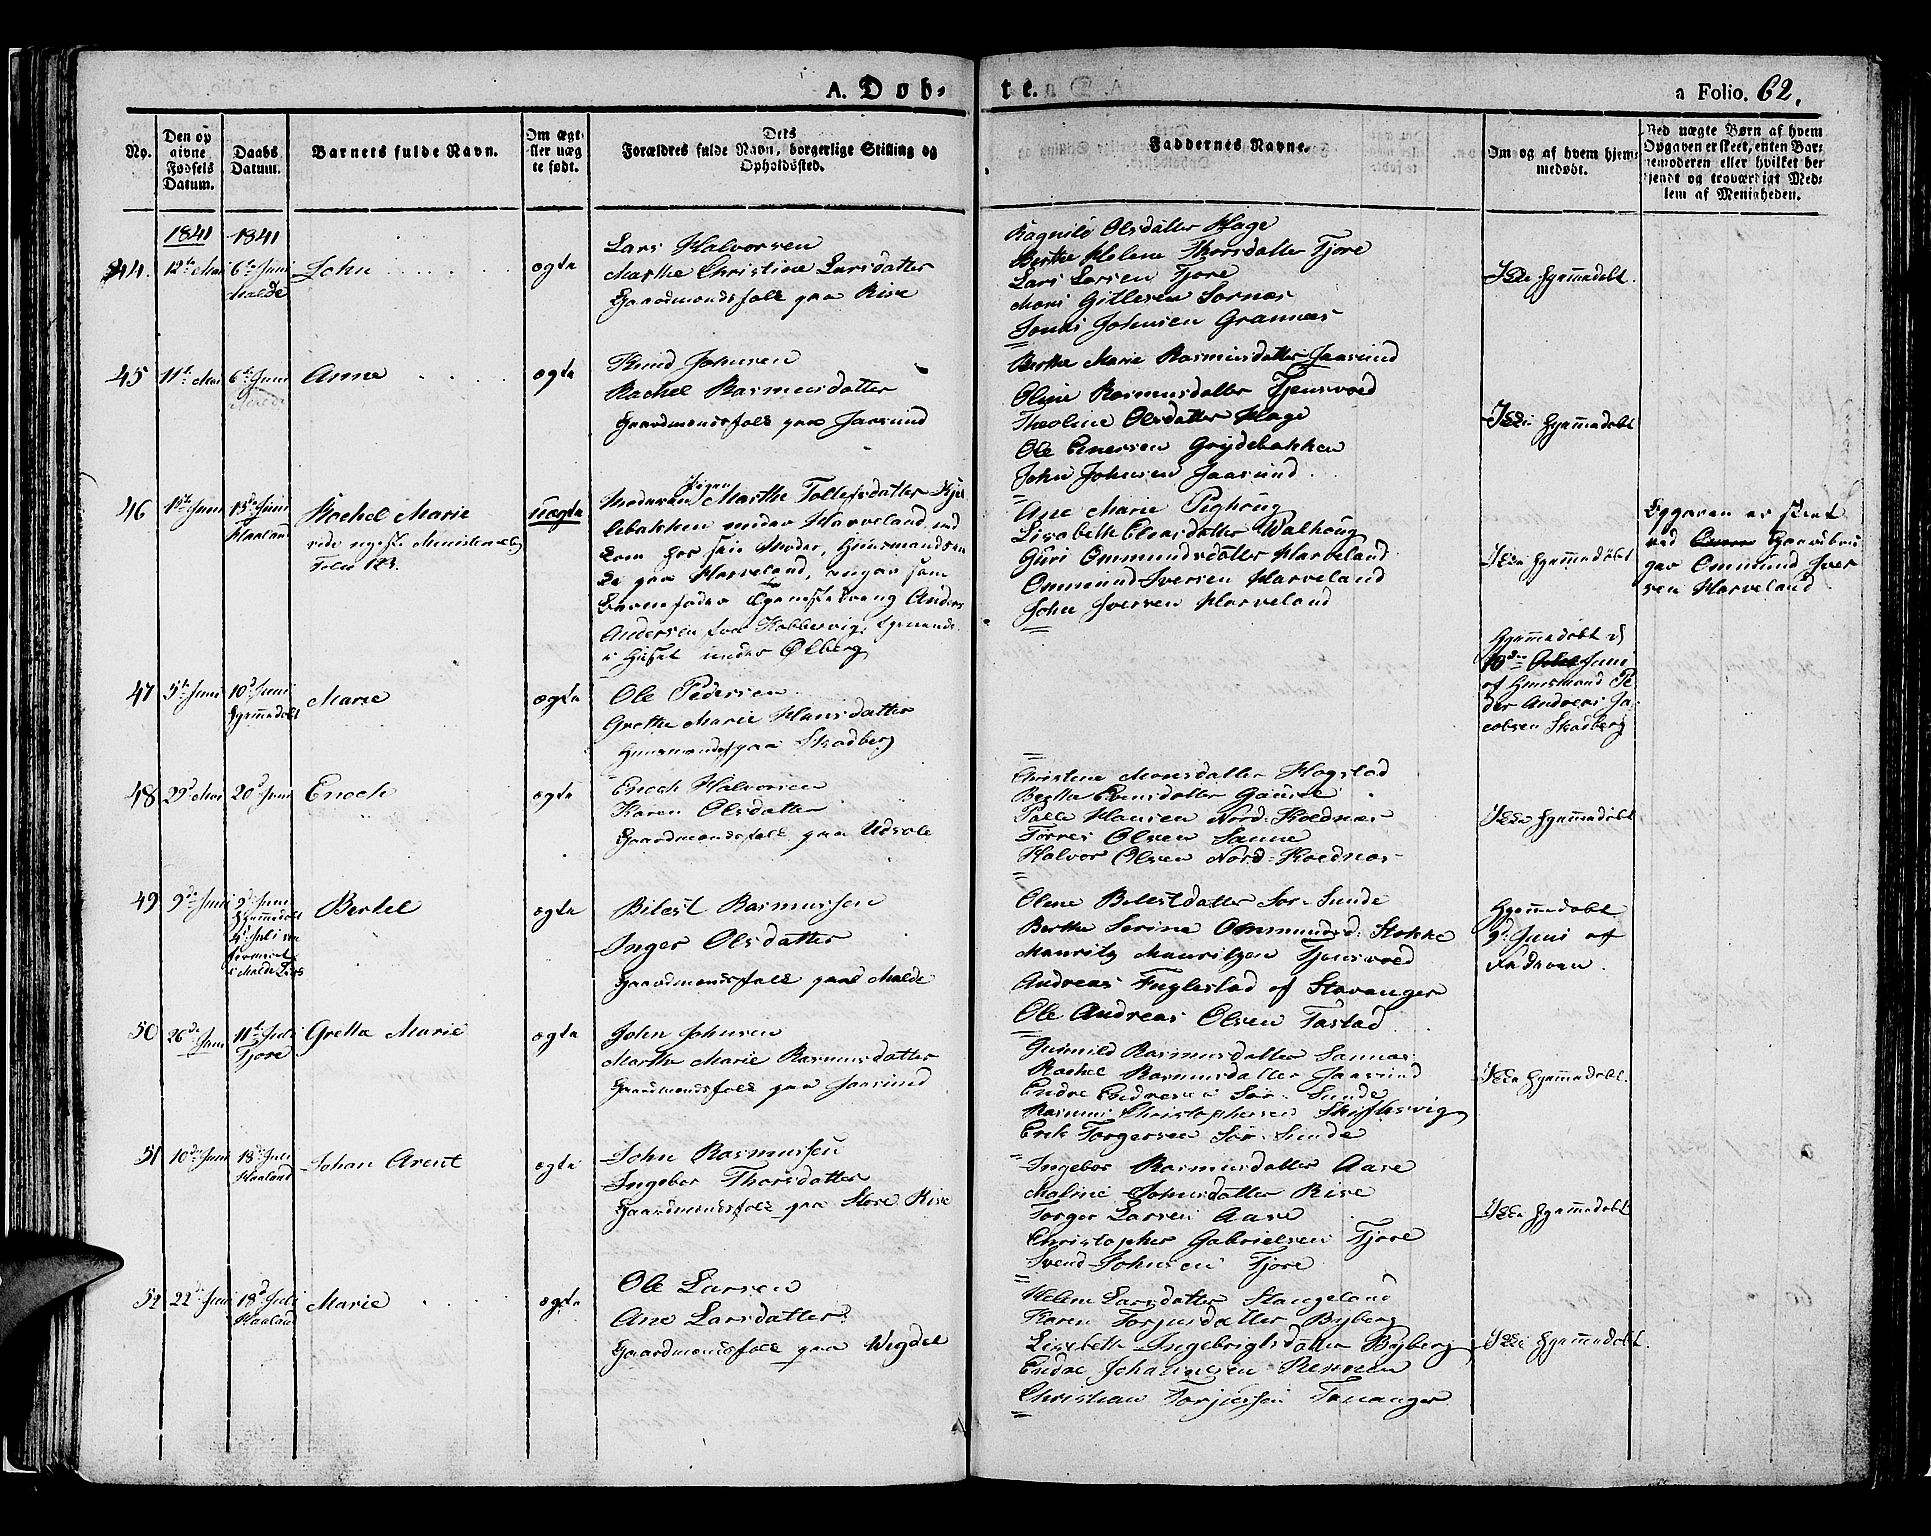 A. Døb-
te.
a Folio. 62.
No.
Den op
givne
Fødsels
Datum.
Daabs
Datum.
Barnets fulde Navn.
Om ægt
eller uæg
te født.
Dets
Forældres fulde Navn, borgerlige Stilling og
Opholdssted.
Faddernes Navne.
Om og af hvem hjem
medøbt.
Ved uægte Børn af hvem
Opgaven er skeet, enten Bar-
nemoderen eller hvilket be
kjendt og troværdigt Med-
lem af Menigheden.
1841 1841
44. 12te Mai 6te Juni
Malde
John
ægte
Lars Halvorsen
Marthe Christine Larsdatter
Gaardmandsfolk paa Rise
Ragnild Olsdatter Hage
Berthe Helene Thorsdatter Tjore
Lars Larsen Tjore
Mons Gitlesen Sørnæs
Jonas Johnsen Grannæs
Ikke hjemmedøbt.
45 11te Mai 6te Juni
Anna
ægte
Knud Johnsen
Rachel Rasmusdatter
Gaardmandsfolk paa Jaasund
Berthe Marie Rasmusdatter Jaasund
Oline Rasmusdatter Tjensvold
Theoline Olsdatter Hage
Ole Enersen Grydebakken
John Johnsen Jaasund.
Ikke hjemmedøbt
46 1ste Juni 13de Juni
Haaland
Rachel Marie
vide nyeste Ministerialbog
Folio 123.
uægte
Moderen Pigen Marthe Tollefsdatter Kjel
lebakken under Harveland, ved
kom hos sin Moder, Huusmandsen
ke paa Harveland, angav som
Barnefader Tjenestedreng Anders
Andersen fra Kobbervig, tjenende
i Huset under Ølberg
Ane Marie Pighoug
Lisabeth Clausdatter Walhoug
Guri Ommundsdatter Harveland
Ommund Iversen Harveland
John Iversen Harveland
Ikke hjemmedøbt
Opgaven er skeet
ved Gaardbru
ger Ommund Iver
sen Harveland
47 5te Juni 10d Juni
Hjemmedøbt
Marie
ægte
Ole Pedersen
Grethe Marie Hansdatter
Huusmandsf paa Skadberg
Hjemmedøbt d
10de Juni
af Huusmand Pe
der Andreas Ja
cobsen Skadberg
48 29d Mai 20d Juni
Enoch
ægte
Enoch Halvorsen
Karen Olsdatter
Gaardmandsfolk paa Udsole
Christine Monsdatter Hogstad
Bertha Evensdatter Gausel
Palle Hansen Nord-Koldnæs
Tørres Olsen Sanne
Halvor Olsen Nord-Koldnæs
Ikke hjemmedøbt
49 9de Juni 9d Juni
Hjemmedøbt
Juli con
firmeret
i Malde Kirke
Bertel
ægte
Bilest Rasmussen
Inger Olsdatter
Gaardmandsfolk paa Malde
Oline Bilestdatter Sør-Sunde
Berthe Serine Ommundsd. Stokke
Mauritz Mauritzen Tjensvold
Andreas Fuglestad af Stavanger
Ole Andreas Olsen Tastad
Hjemmedøbt
9d Juni af
Faderen.
50 26de Juni 11te Juli
Tjore
Gretha Marie
ægte
John Johnsen
Martha Marie Rasmusdatter
Gaardmandsfolk paa Jaasund
Gunnild Rasmusdatter Sannæs
Rachel Rasmusdatter Jaasund
Endre Endresen Sør-Sunde
Rasmus Christophersen Skiftesvig
Erik Torgersen Sør-Sunde
Ikke hjemmedøbt.
51 10de Juni 18d Juli
Haaland
Johan Arent
ægte
John Rasmussen
Ingebor Thorsdatter
Gaardmandsfolk paa Store Rise
Ingebor Rasmusdatter Aase
Maline Johnsdatter Rise
Torger Larsen Aase
Christopher Gabrielsen Tjore
Svend Johnsen Tjore
Ikke hjemmedøbt
52 22d Juni 18d Juli
Haaland
Marie
ægte
Ole Larsen
Ane Larsdatter
Gaardmandsfolk paa Wigdel
Helene Larsdatter Stangeland
Karen Torjusdatter Byberg
Lisebeth Ingebrigtsdatter Byberg
Endre Johannesen Rennen
Christian Torjussen Tananger
Ikke hjemmedøbt.